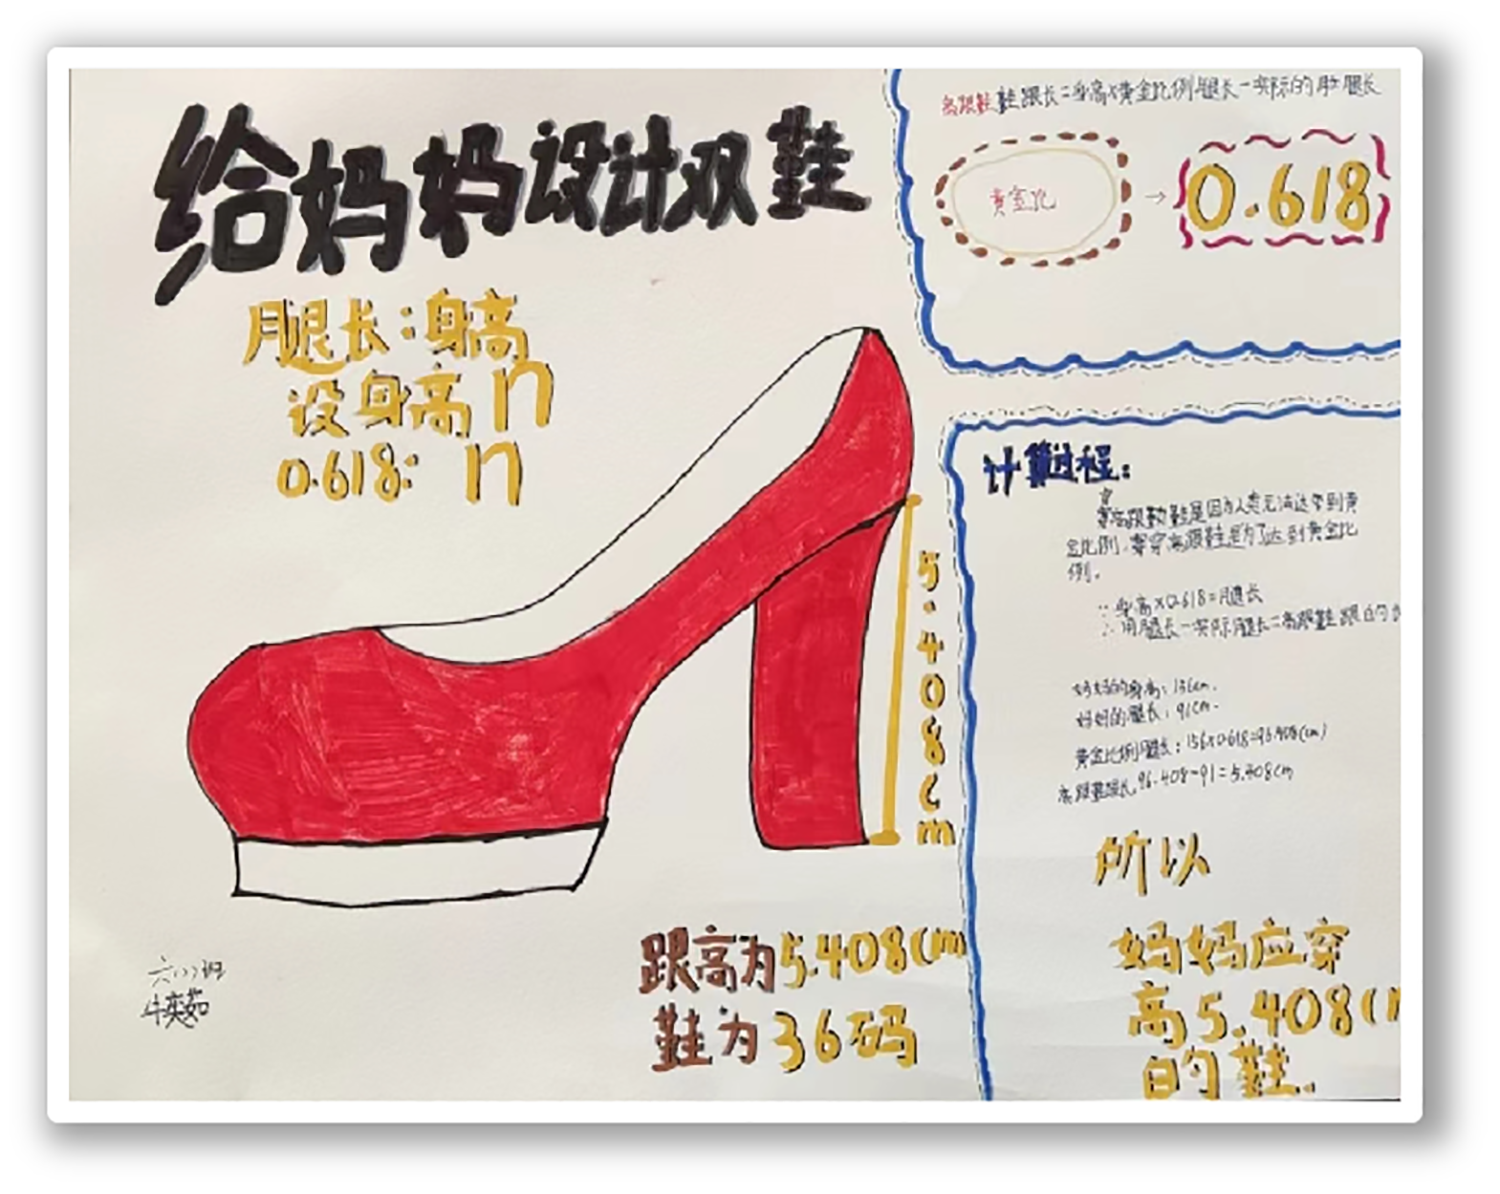 给妈妈设计双鞋
腿长:身高
设身高n
0.618: n
5.408cm
跟高为5.408cm
鞋为36码
六(1)班
牛奕茹
高跟鞋鞋跟长=身高×黄金比例腿长-实际的腿长
黄金比
→
0.618
计算过程:
穿高跟鞋是因为人类无法达到黄
金比例,穿高跟鞋是为了达到黄金比
例。
∵身高×0.618=腿长
∴用腿长-实际腿长=高跟鞋跟的
妈妈的身高:156cm.
妈妈的腿长:91cm.
黄金比例腿长:156×0.618=96.408(cm)
高跟鞋跟长 96.408-91=5.408cm
所以
妈妈应穿
高5.408c
的鞋.